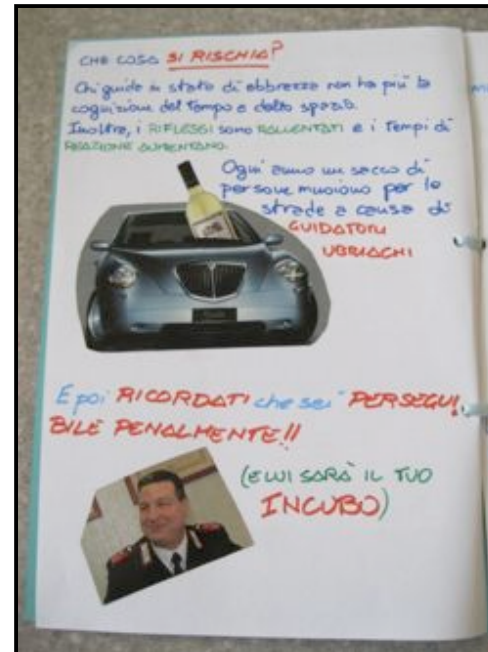 CHE COSA SI RISCHIA?
Chi guida in stato di ebbrezza non ha più la
cognizione del tempo e dello spazio.
Inoltre, i RIFLESSI sono RALLENTATI e i Tempi di
REAZIONE AUMENTANO.
Ogni anno un sacco di
persone muoiono per le
strade a causa di
GUIDATORI
UBRIACHI
E poi RICORDATI che sei PERSEGUI
BILE PENALMENTE!!
(E LUI SARÀ IL TUO
INCUBO)